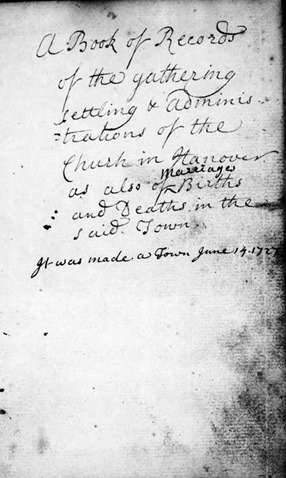 A Book of Records
of the gathering
settling & adminis-
=trations of the
Church in Hanover
as also of Marriages Births
and Deaths in the
said Town.
It was made a Town June 14. 1727